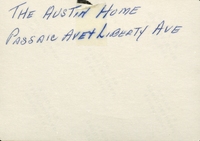 THE AUSTIN HOME
PASSAIC AVE & LIBERTY AVE